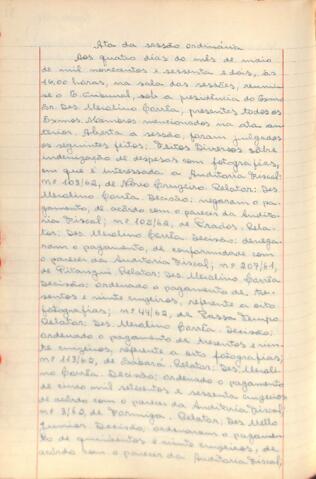 Ata da sessão ordinária
Aos quatro dias do mês de maio
de mil novecentos e sessenta e dois, às
14,00 horas, na sala das sessões, reuniu-
se o E. Tribunal, sob a presidência do Exmo
Sr. Des. Merolino Corrêa, presentes todos os
Exmos. Senhores mencionados na ata an-
terior. Aberta a sessão, foram julgados
os seguintes feitos: Feitos Diversos sobre
indenização de despesas com fotografias,
em que é interessada a Auditoria Fiscal:
nº 103/62, de Novo Cruzeiro. Relator: Des.
Merolino Corrêa. Decisão: negaram o pa-
gamento, de acôrdo com o parecer da Audito-
ria Fiscal; nº 102/62, de Prados. Rela-
tor: Des. Merolino Corrêa. Decisão: denega-
ram o pagamento, de conformidade com
o parecer da Auditoria Fiscal; nº 207/61,
de Pitangui. Relator: Des. Merolino Corrêa.
Decisão: ordenado o pagamento de tre-
sentos e vinte cruzeiros, referente a oito
fotografias; nº 44/62, de Passa Tempo.
Relator: Des. Merolino Corrêa. Decisão:
ordenado o pagamento de trezentos e vin-
te cruzeiros, referente a oito fotografias;
nº 113/62, de Sabará. Relator: Des. Meroli-
no Corrêa. Decisão: ordenado o pagamento
de cinco mil seiscentos e sessenta cruzeiros
de acôrdo com o parecer da Auditoria Fiscal;
nº 3/62, de Formiga. Relator: Des. Mello
Junior. Decisão: ordenaram o pagamen-
to de quinhentos e vinte cruzeiros, de
acôrdo com o parecer da Auditoria Fiscal;